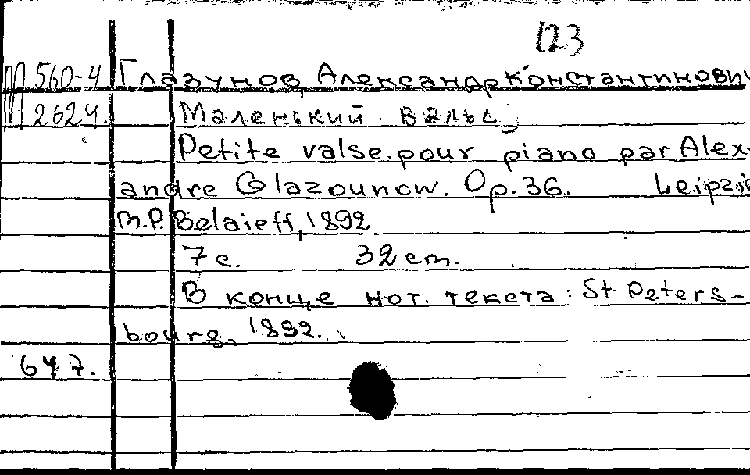 123
П 560-4 Глазунов, Александр Константинович
П 2624 Маленький вальс
Petite valse. pour piano par Alex-
andre Glazounow. Op. 36. Leipzig
M.P. Belaieff, 1892
7 с. 32 cm.
В конце нот. текста: St Peters-
bourg, 1892.
647.